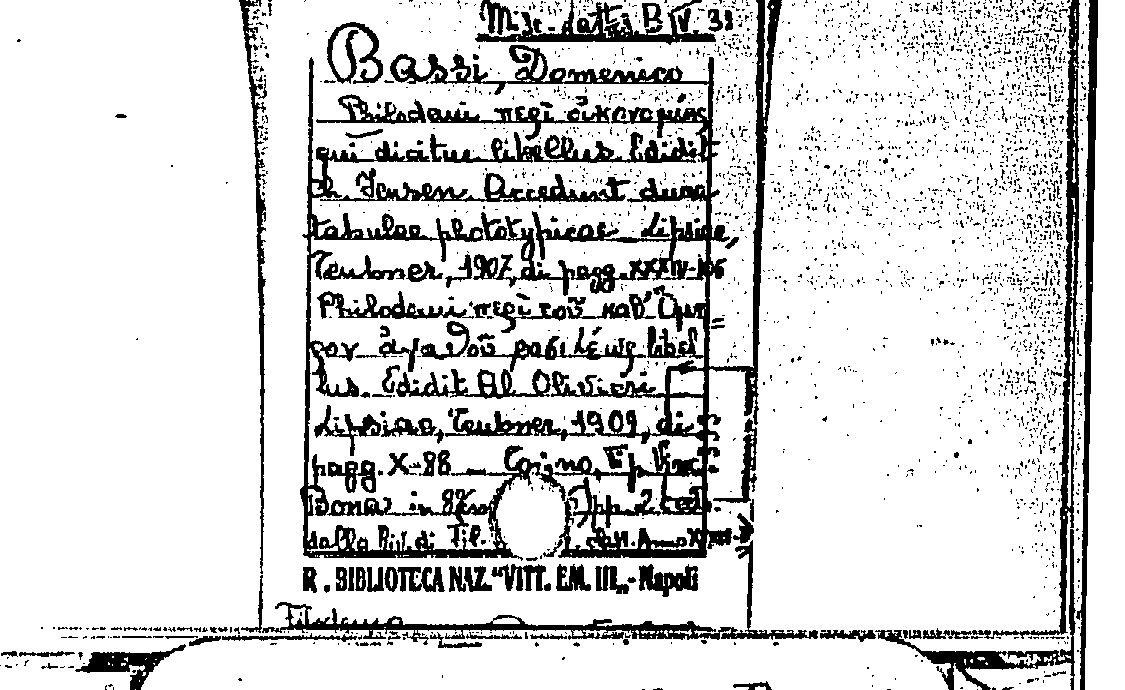 Misc. B IV. 31
Bassi, Domenico
Philodemi περὶ οἰκονομίας
qui dicitur libellus. Edidit
Ch. Jensen. Accedunt duae
tabulae phototypicae. Lipsiae,
Teubner, 1907, di pagg. XXXIV-106
Philodemi περὶ τοῦ καθ' Ὅμη=
ρον ἀγαθοῦ βασιλέως libel
lus. Edidit Al. Olivieri
Lipsiae, Teubner, 1909, di
pagg. X-88 — Torino, Tip. Vinc.
Bona, in 8º
dalla Riv. di Fil. class. Anno
R. BIBLIOTECA NAZ. "VITT. EM. III„ - Napoli
Filodemo